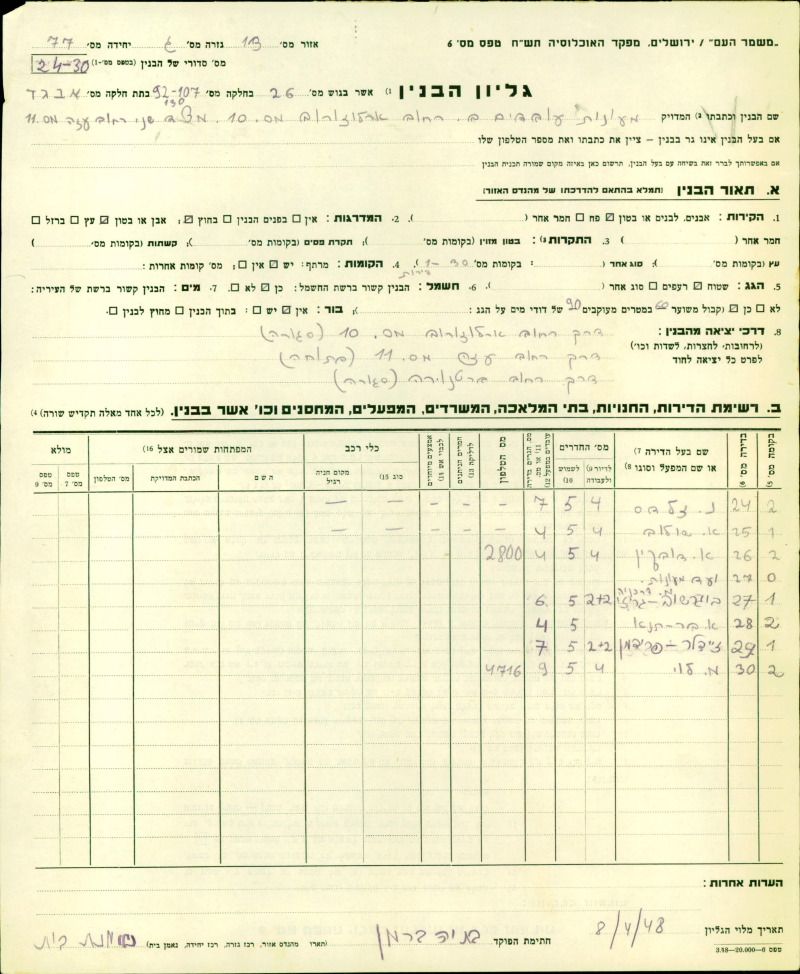 „משמר העם" / ירושלים, מפקד האוכלוסיה תש"ח טפס מס׳ 6
אזור מס׳ 13 גזרה מס׳ ג יחידה מס׳ 77
מס׳ סדורי של הבנין (בטפס מס׳-1) 24-30
גליון הבנין (1 אשר בגוש מס׳ 26 בחלקה מס׳ 92-107 בתת חלקה מס׳ א ב ג ד
130
שם הבנין וכתבתו (2 המדויק מעונות עובדים ב. רחוב ארלוזורוב מס. 10. מצד שני רחוב עזה מס. 11
אם בעל הבנין אינו גר בבנין – ציין את כתבתו ואת מספר הטלפון שלו
אם באפשרותך לברר זאת בשיחה עם בעל הבנין, תרשום כאן באיזה מקום שמורה תכנית הבנין
א. תאור הבנין (תמלא בהתאם להדרכתו של מהנדס האזור)
1. הקירות: אבנים, לבנים או בטון ☑ פח ☐ חמר אחר ( ). 2. המדרגות: אין ☐ בפנים הבנין ☐ בחוץ ☑: אבן או בטון ☑ עץ ☐ ברזל ☐
חמר אחר ( ) 3. התקרות (3: בטון מזוין (בקומות מס׳ ); תקרת פסים (בקומות מס׳ ); קשתות (בקומות מס׳ )
עץ (בקומות מס׳ ); סוג אחד ( : בקומות מס׳ ). 4. הקומות: מרתף: יש ☑ אין ☐: מס׳ קומות אחרות: 1-30
דירות
5. הגג: שטוח ☑ רעפים ☐ סוג אחר ( ). 6. חשמל: הבנין קשור ברשת החשמל: כן ☑ לא ☐. 7. מים: הבנין קשור ברשת של העיריה:
לא ☐ כן ☑ (קבול משוער 60 במטרים מעוקבים 90 של דודי מים על הגג: ); בור: אין ☑ יש ☐: בתוך הבנין ☐ מחוץ לבנין ☐.
8. דרכי יציאה מהבנין: דרך רחוב ארלוזורוב מס. 10 (סגורה)
(לרחובות, לחצרות, לשדות וכו׳) דרך רחוב עזה מס. 11 (פתוחה)
לפרט כל יציאה לחוד דרך רחוב ברטנורה (סגורה)
ב. רשימת הדירות, החנויות, בתי המלאכה, המשרדים, המפעלים, המחסנים וכו׳ אשר בבנין. (לכל אחד מאלה תקדיש שורה) (4
בקומה מס׳ (5 בדירה מס׳ (6 שם בעל הדירה (7 או שם המפעל וסוגו (8 מס׳ החדרים לדיור (9 ולעבודה לשמוש (10 מס׳ הגרים בדירה (11 או מס׳ עובדים במפעל (12 מס׳ הטלפון חמרים הניתנים לדליקה (13 אמצעים מיוחדים לכבוי אש (14 כלי רכב סוג (15 מקום חניה רגיל המפתחות שמורים אצל (16 השם הכתבת המדויקת מס׳ הטלפון מולא טפס מס׳ 7 טפס מס׳ 9
2 24 4 5 7 – – – – –
1 25 א. 4 5 4 – – – – –
2 26 א. דובקין 4 5 4 2800
0 27 ועד מעונות.
1 27 2+2 5 6
2 28 א. בר-תנא 5 4
1 29 זיידלר – פרידמן 2+2 5 7
2 30 מ. לוי 4 5 9 4716
הערות אחרות:
תאריך מלוי הגליון 8/4/48 חתימת הפוקד בתיה ברמן (תארו מהנדס אזור, רכז גזרה, רכז יחידה, נאמן בית) נאמנת בית
טפס 6–20.000–3.48